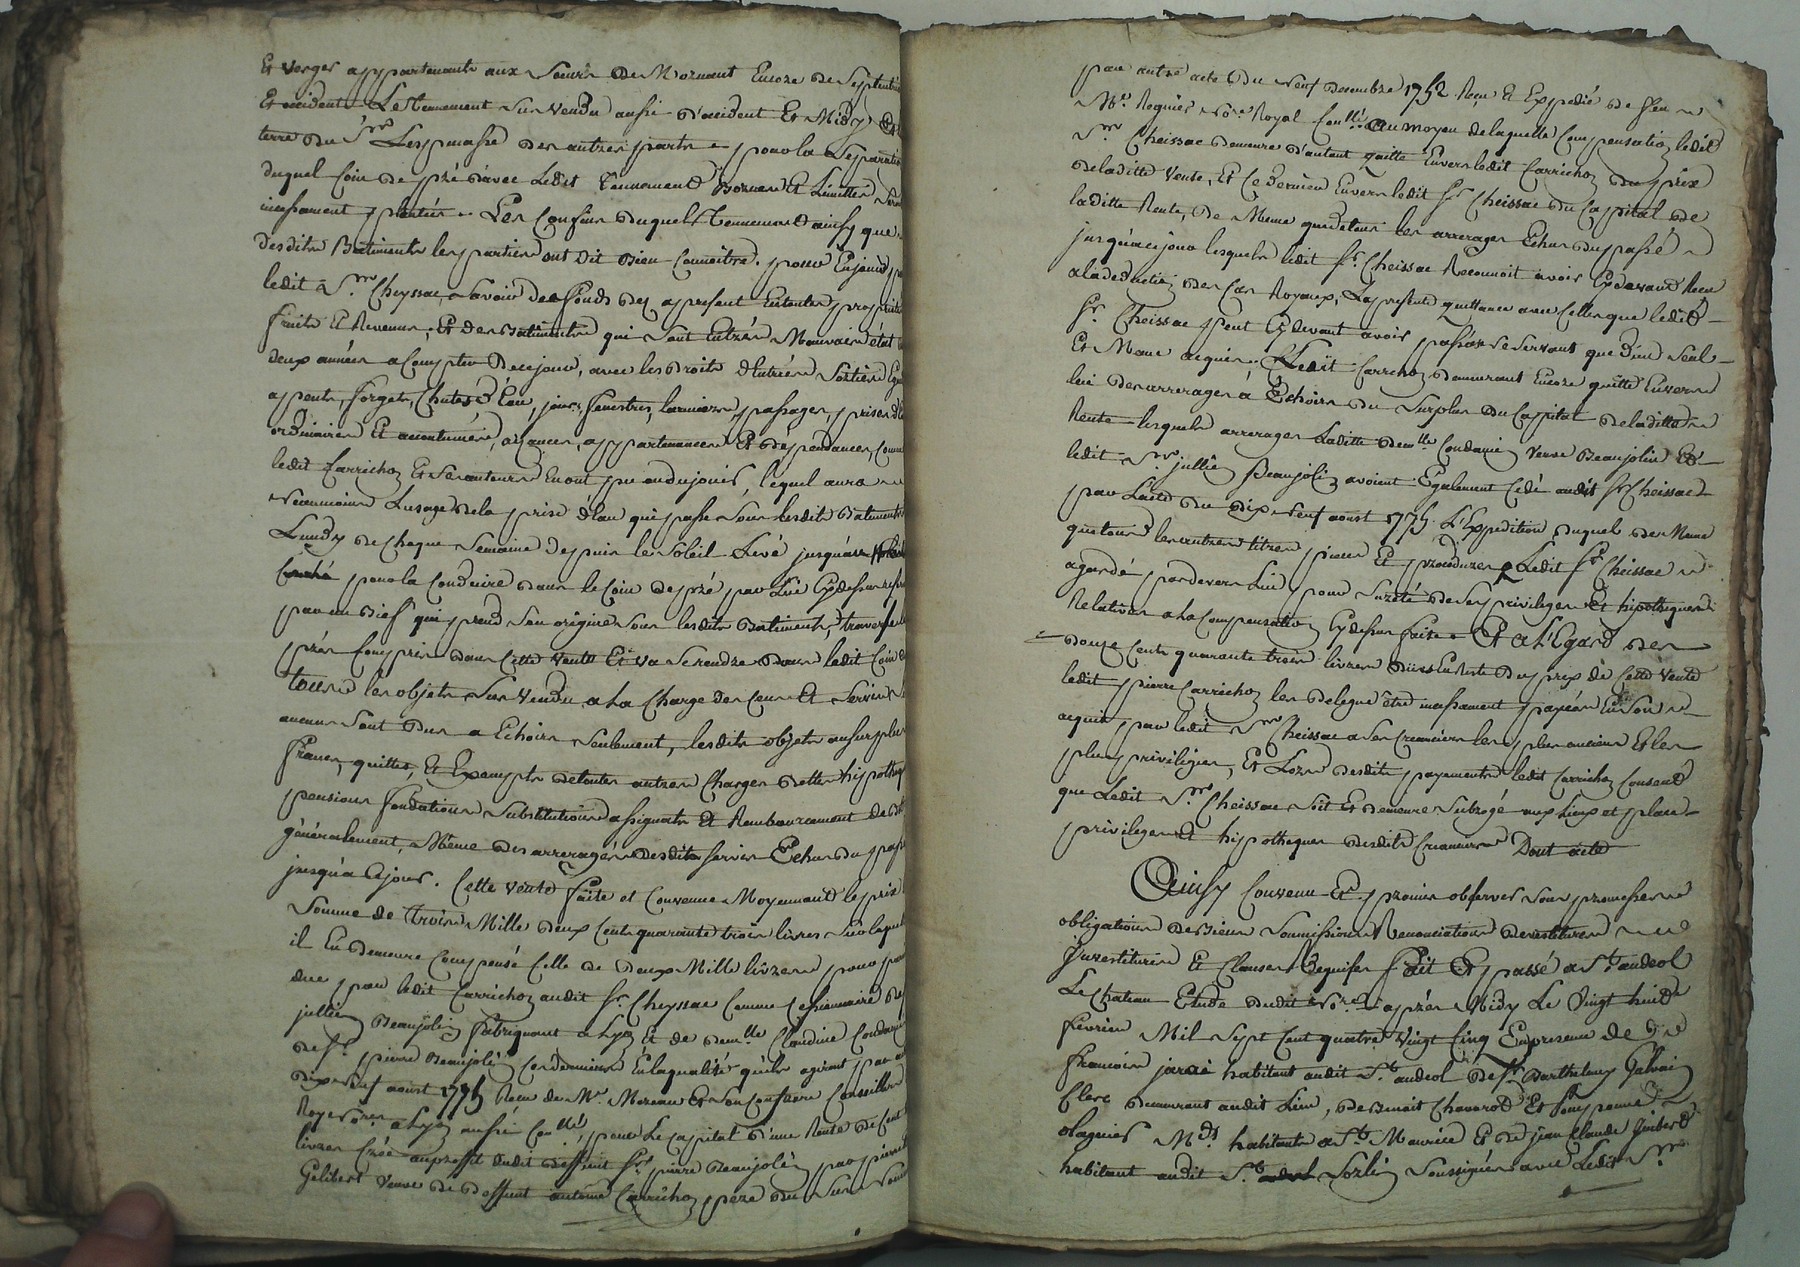 Et verger appartenants aux Soeurs de Mornant Encore de Septentrion
Et occident Le Tennement Sus Vendu aussi d'occident Et Midy
terre du Srs Lespinasse des autres parts pour la Separation
duquel Coin de pré d'avec Ledit Tennement Bornes Et Limittes
incessament plantés. Les Confins duquel Tennement ainsy que
desdits Batiments les parties ont dit Bien Connoitre. pour En jouir
ledit Sr Cheyssac Savoir des fonds dez apresent Entoute propriété
fruits Et Revenus, Et des Batiments qui Sont Entrés Mauvais état
deux années a Compter de ce jour, avec les Droits d'Entrées Sorties
apents, forgets, Chutes d'Eau, jours, fenestres, larmiers, passages, prises d'
ordinaires Et accoutumés, aisances, appartenances Et dependances, Comme
ledit Carrichon Et Ses auteurs En ont pu ou du jouir, lequel aura
néanmoins Lusage de la prise d'Eau qui passe Sous lesdits Batiments
Lundy de Chaque Semaine depuis le Soleil Levé jusqu'au
Couché pour la Conduire dans le Coin de pré par Lui Cydessus
par un Bief qui prend Son origine Sous lesdits Batiments, traverse le
prés Compris dans Cette Vente Et Va Se rendre dans ledit Coin
tous les objets Sus Vendu a La Charge des Cens Et Servis
aucuns Sont Dus a Echoir Seulement, lesdits objets au surplus
francs, quittes, Et Exempts de toutes autres Charges dettes hipotheques
pensions fondations Substitutions assignats Et Rembourcement de
généralement, Même des arrerages desdits Servis Echus du passé
jusqu'a Ce jour. Cette Vente faite et Convenue Moyennant le prix
Somme de trois Mille deux Cent quarante trois livres Sur laquelle
il En demeure Compensé Celle de Deux Mille livres pour
due par ledit Carrichon audit Sr. Cheyssac Comme Cessionnaire de
jullien Beaujolin fabriquant a Lyon Et de Demlle Claudine Condamin
de Sr. pierre Beaujolin Ces derniers En laqualité qu'ils agissent par
dix Neuf aoust 1775 Recu de Me. Moreau Et Son Confrere Conseillers
Roy Nores a Lyon aussi Contlé, pour Le Capital d'une Rente de Cent
livres Créé auproffit dudit deffunt Sr. pierre Beaujolin par
Gelibert Veuve de deffunt antoine Carrichon pere du Sus
par autre acte du Neuf decembre 1752 Reçu Et Expedié de feu
Me. Regnier Nore. Royal Contlé. au moyen delaquelle Compensation ledit
Sr. Cheissac demeure d'autant quitte Envers ledit Carrichon du prix
deladitte Vente, Et Ce dernier Envers ledit Sr. Cheissac du Capital de
laditte Rente, de Meme que de tous les arrerages Echus du passé
jusqu'a ce jour lesquels ledit Sr. Cheissac Reconnoit avoir Cydevant Recu
a la deduction des Cas Royaux, La presente quittance avec Celles que ledit
Sr. Cheissac peut Cydevant avoir passées ne Servant que d'un Seul
Et Meme acquit. Ledit Carrichon demeurant Encore quitte Envers
lui des arrerages à Echoir du Surplus du Capital deladitte
Rente lesquels arrerages Laditte Demlle Condamin Veuve Beaujolin Et
ledit Sr. jullien Beaujolin avoient Egalement Cédé audit Sr. Cheissac
par L'acte du Dix Neuf aoust 1775. L'Expedition duquel de Meme
que tous les autres titres pieces Et procédures Ledit Sr. Cheissac
a gardé pardevers Lui pour Sureté de Ses privileges Et hipotheques
Relatives a la Compensation Cydessus faite. Et a L'Egard des
douze Cents quarante trois livres dües En Reste du prix de Cette Vente
ledit pierre Carrichon les delegue être incessament payées En Son
acquit par ledit Sr Cheissac a Ses Creanciers les plus anciens Et les
plus privilegiés, Et Lors desdits payements ledit Carrichon Consent
que Ledit Sr. Cheissac Soit Et demeure Subrogé aux Lieux et place
privileges Et hypotheques desdits Creanciers Dont acte
Ainsy Convenu Et promis observer Sous promesses
obligations de Biens Soumissions Renonciations
Et Clauses Requises Fait Et passé a St. andeol
Le Chateau Etude dudit Nore. apres Midy Le Vingt huit
fevrier Mil Sept Cent quatre Vingt Cinq En presence de
francois jarsé habitant audit St. andeol de Sr. Barthelemy Galvain
Clerc demeurant audit Lieu, de Benoit Chavarot Et Compounié
olagnier Mds habitants a St. Maurice Et de jean Claude Jinbert
habitant audit St. Sorlin Soussignés avec Ledit Sr.